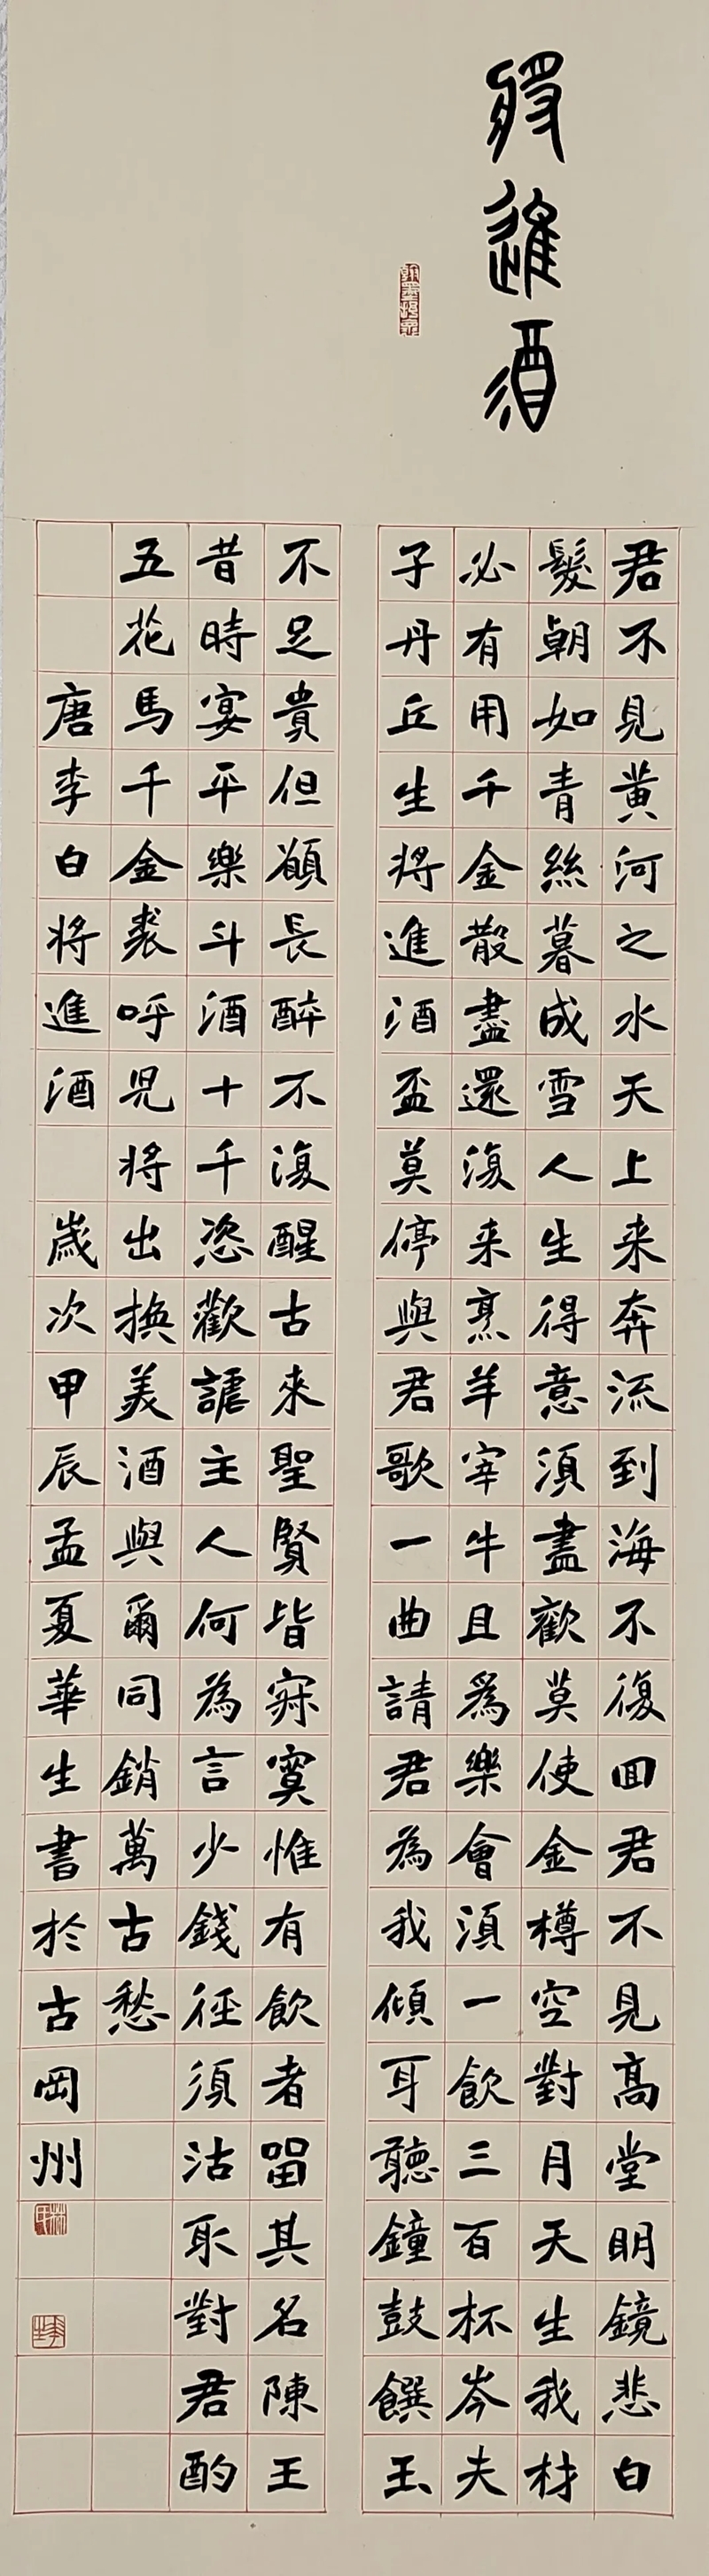 將進酒
君不見黃河之水天上来奔流到海不復回君不見高堂明鏡悲白
髮朝如青絲暮成雪人生得意須盡歡莫使金樽空對月天生我材
必有用千金散盡還復来烹羊宰牛且爲樂會須一飲三百杯岑夫
子丹丘生將進酒盃莫停與君歌一曲請君為我傾耳聽鐘鼓饌玉
不足貴但願長醉不復醒古來聖賢皆寂寞惟有飲者留其名陳王
昔時宴平樂斗酒十千恣歡謔主人何為言少錢徑須沽取對君酌
五花馬千金裘呼兒將出換美酒與爾同銷萬古愁
唐李白將進酒 歲次甲辰孟夏華生書於古岡州